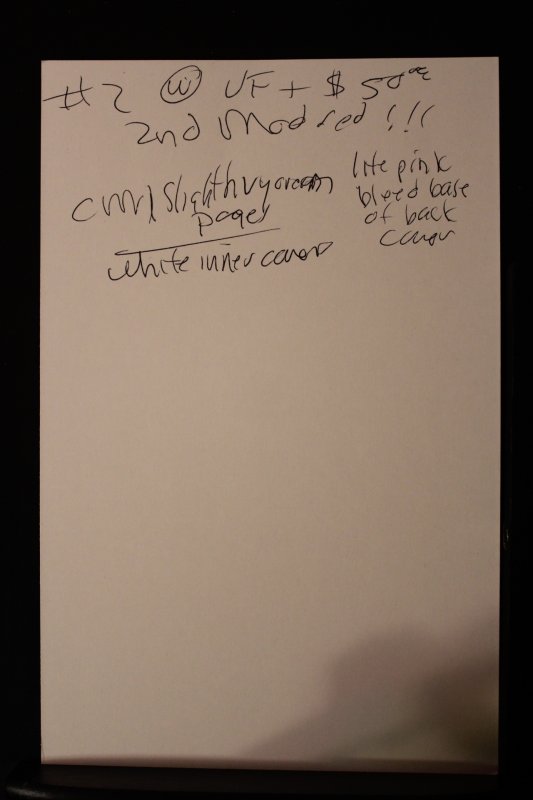 #2 W VF + $ 50
2nd Mod red !!!
slightly cream
pages
white inner cover
lite pink
bleed base
of back
cover